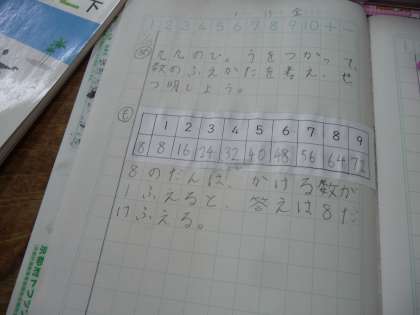 下
1 2 3 4 5 6 7 8 9 10 + -
め
九九のひょうをつかって、
数のふえかたを考え、せ
つ明しよう。
も
1 2 3 4 5 6 7 8 9
8 8 16 24 32 40 48 56 64 72
8のだんは、かける数が
1ふえると、答えは8だ
けふえる。